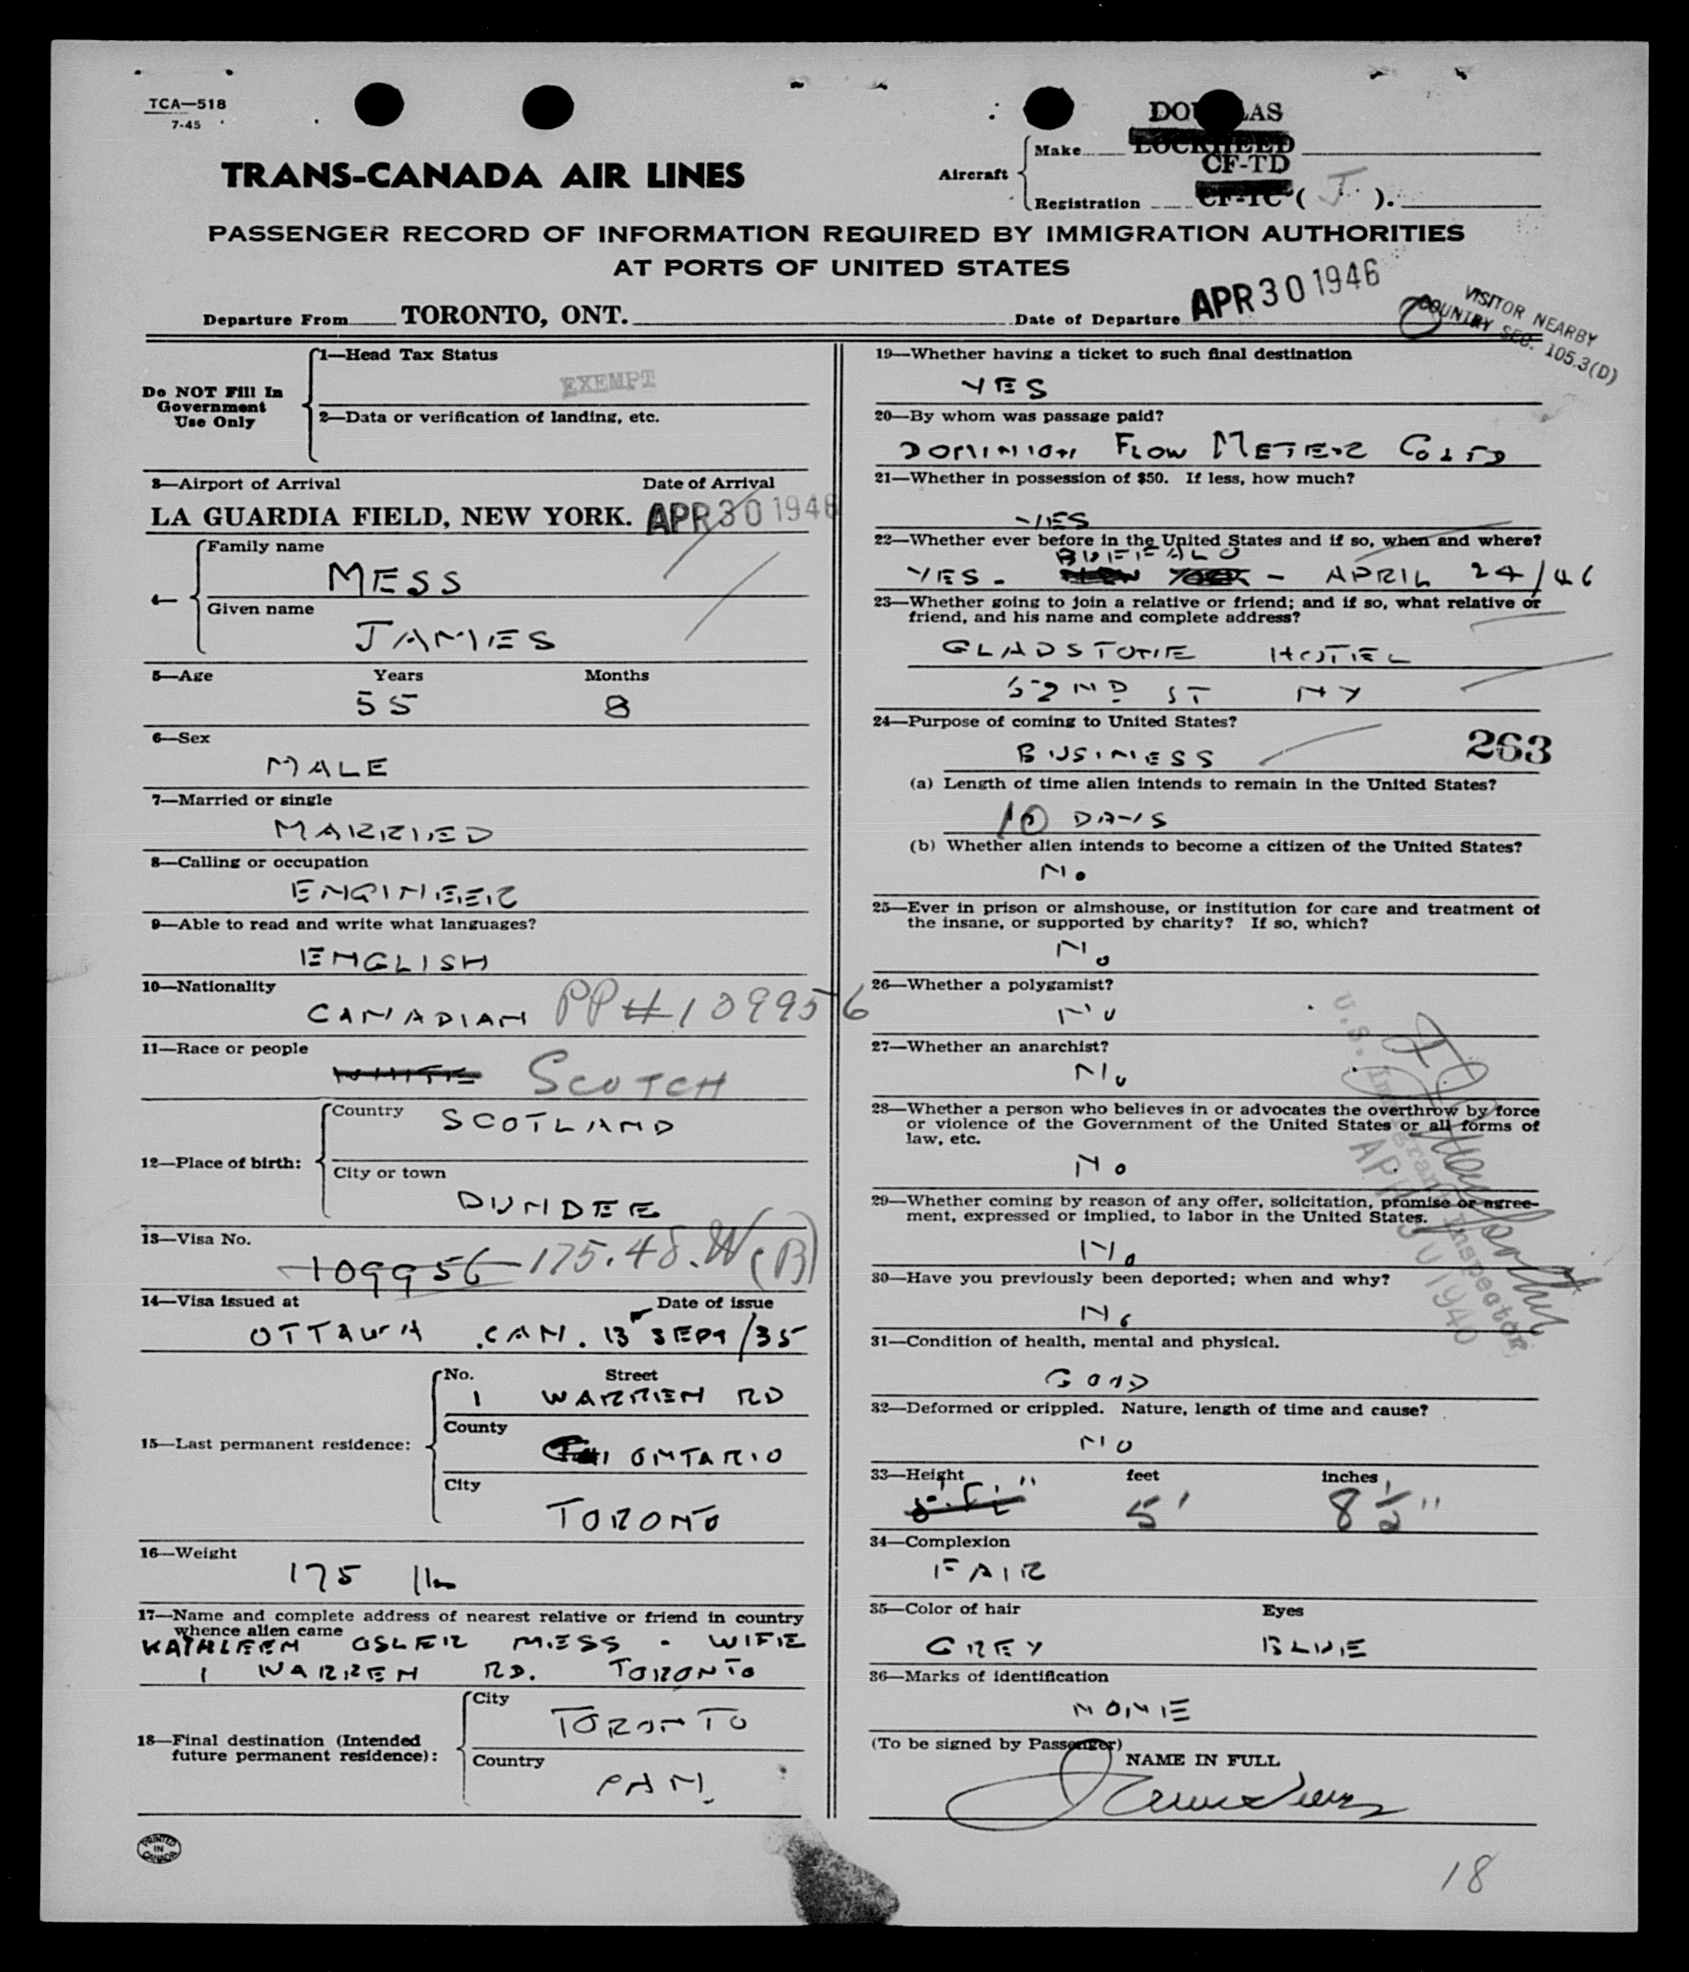 TCA—518
7-45
DOUGLAS
Make LOCKHEED
TRANS-CANADA AIR LINES
Aircraft
CF-TD
Registration CF-TC ( J ).
PASSENGER RECORD OF INFORMATION REQUIRED BY IMMIGRATION AUTHORITIES
AT PORTS OF UNITED STATES
Departure From TORONTO, ONT.
Date of Departure APR 30 1946
VISITOR NEARBY
COUNTRY SEC. 105.3(D)
Do NOT Fill In
Government
Use Only
1—Head Tax Status
EXEMPT
2—Data or verification of landing, etc.
3—Airport of Arrival Date of Arrival
LA GUARDIA FIELD, NEW YORK. APR 30 1946
4—
Family name
MESS
Given name
JAMES
5—Age Years Months
55 8
6—Sex
MALE
7—Married or single
MARRIED
8—Calling or occupation
ENGINEER
9—Able to read and write what languages?
ENGLISH
10—Nationality
CANADIAN PP#109956
11—Race or people
WHITE SCOTCH
12—Place of birth:
Country SCOTLAND
City or town
DUNDEE
13—Visa No.
109956 175.48.W(B)
14—Visa issued at Date of issue
OTTAWA CAN. 13 SEPT/35
15—Last permanent residence:
No. Street
1 WARREN RD
County
ONTARIO
City
TORONTO
16—Weight
175 lbs
17—Name and complete address of nearest relative or friend in country
whence alien came
KATHLEEN OSLER MESS - WIFE
1 WARREN RD. TORONTO
18—Final destination (Intended
future permanent residence):
City
TORONTO
Country
CAN.
PRINTED
IN
CANADA
19—Whether having a ticket to such final destination
YES
20—By whom was passage paid?
DOMINION FLOW METER CO LTD
21—Whether in possession of $50. If less, how much?
YES
22—Whether ever before in the United States and if so, when and where?
BUFFALO
YES - NEW YORK - APRIL 24/46
23—Whether going to join a relative or friend; and if so, what relative or
friend, and his name and complete address?
GLADSTONE HOTEL
52ND ST NY
24—Purpose of coming to United States?
BUSINESS
263
(a) Length of time alien intends to remain in the United States?
10 DAYS
(b) Whether alien intends to become a citizen of the United States?
No
25—Ever in prison or almshouse, or institution for care and treatment of
the insane, or supported by charity? If so, which?
No
26—Whether a polygamist?
No
27—Whether an anarchist?
No
28—Whether a person who believes in or advocates the overthrow by force
or violence of the Government of the United States or all forms of
law, etc.
No
29—Whether coming by reason of any offer, solicitation, promise or agree-
ment, expressed or implied, to labor in the United States.
No
U.S. Immigrant Inspector
30—Have you previously been deported; when and why?
No
31—Condition of health, mental and physical.
GOOD
32—Deformed or crippled. Nature, length of time and cause?
NO
33—Height feet inches
5' 8½"
34—Complexion
FAIR
35—Color of hair Eyes
GREY BLUE
36—Marks of identification
NONE
(To be signed by Passenger)
NAME IN FULL
James Mess
18